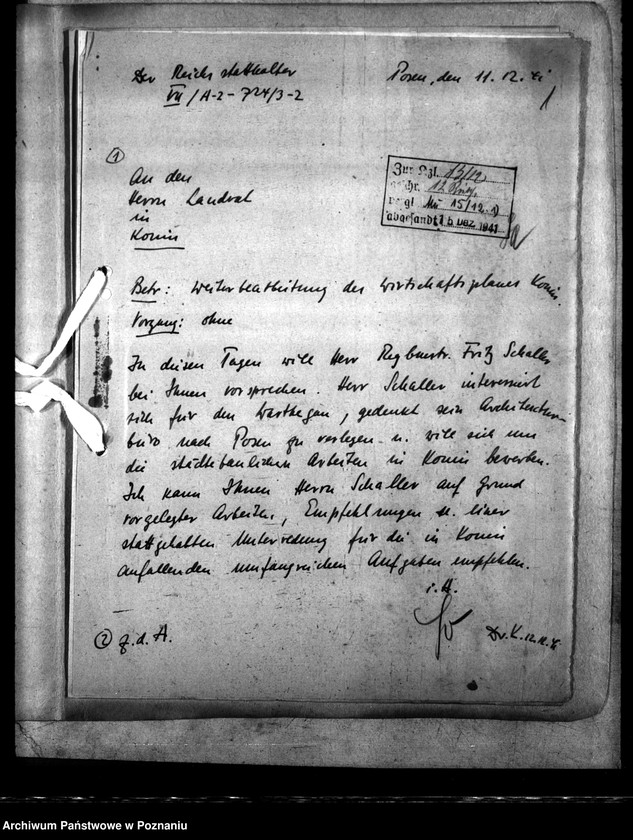 Der Reichsstatthalter
VII/A-2-724/3-2
Posen, den 11.12.41
1
An den
Herrn Landrat
in
Konin
Zur Kzl. 13/12.
geschr. 12.
vergl. Mü 15/12.
abgesandt 15. DEZ. 1941
Betr: Weiterbearbeitung des Wirtschaftsplanes Konin.
Vorgang: ohne
In diesen Tagen will Herr Regbmstr. Fritz Schaller
bei Ihnen vorsprechen. Herr Schaller interessiert
sich für den Warthegau, gedenkt sein Architektur-
büro nach Posen zu verlegen u. will sich um
die städtebaulichen Arbeiten in Konin bewerben.
Ich kann Ihnen Herrn Schaller auf Grund
vorgelegter Arbeiten, Empfehlungen u. einer
stattgehabten Unterredung für die in Konin
anfallenden umfangreichen Aufgaben empfehlen.
i.A.
2 z.d.A.
Dr.K. 12.12.41
Archiwum Państwowe w Poznaniu